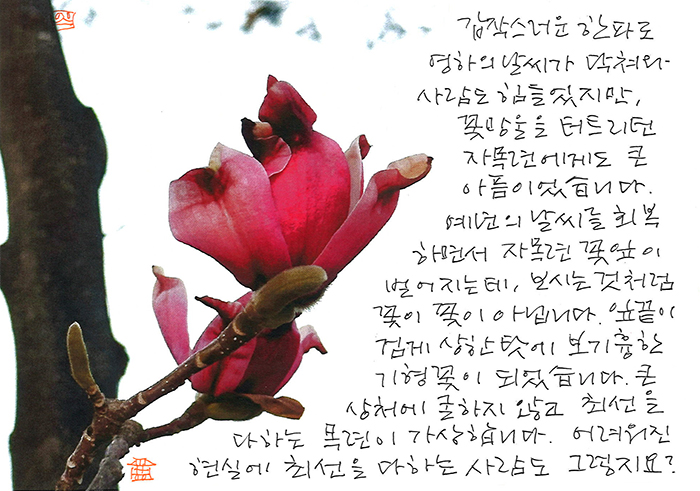 갑작스러운 한파로
영하의 날씨가 닥쳐와
사람도 힘들었지만,
꽃망울을 터트리던
자목련에게도 큰
아픔이었습니다.
예년의 날씨를 회복
하면서 자목련 꽃잎이
벌어지는데, 보시는것처럼
꽃이 꽃이 아닙니다. 잎끝이
검게 상한 탓에 보기흉한
기형꽃이 되었습니다. 큰
상처에 굴하지 않고 최선을
다하는 목련이 가상합니다. 어려워진
현실에 최선을 다하는 사람도 그렇지요?